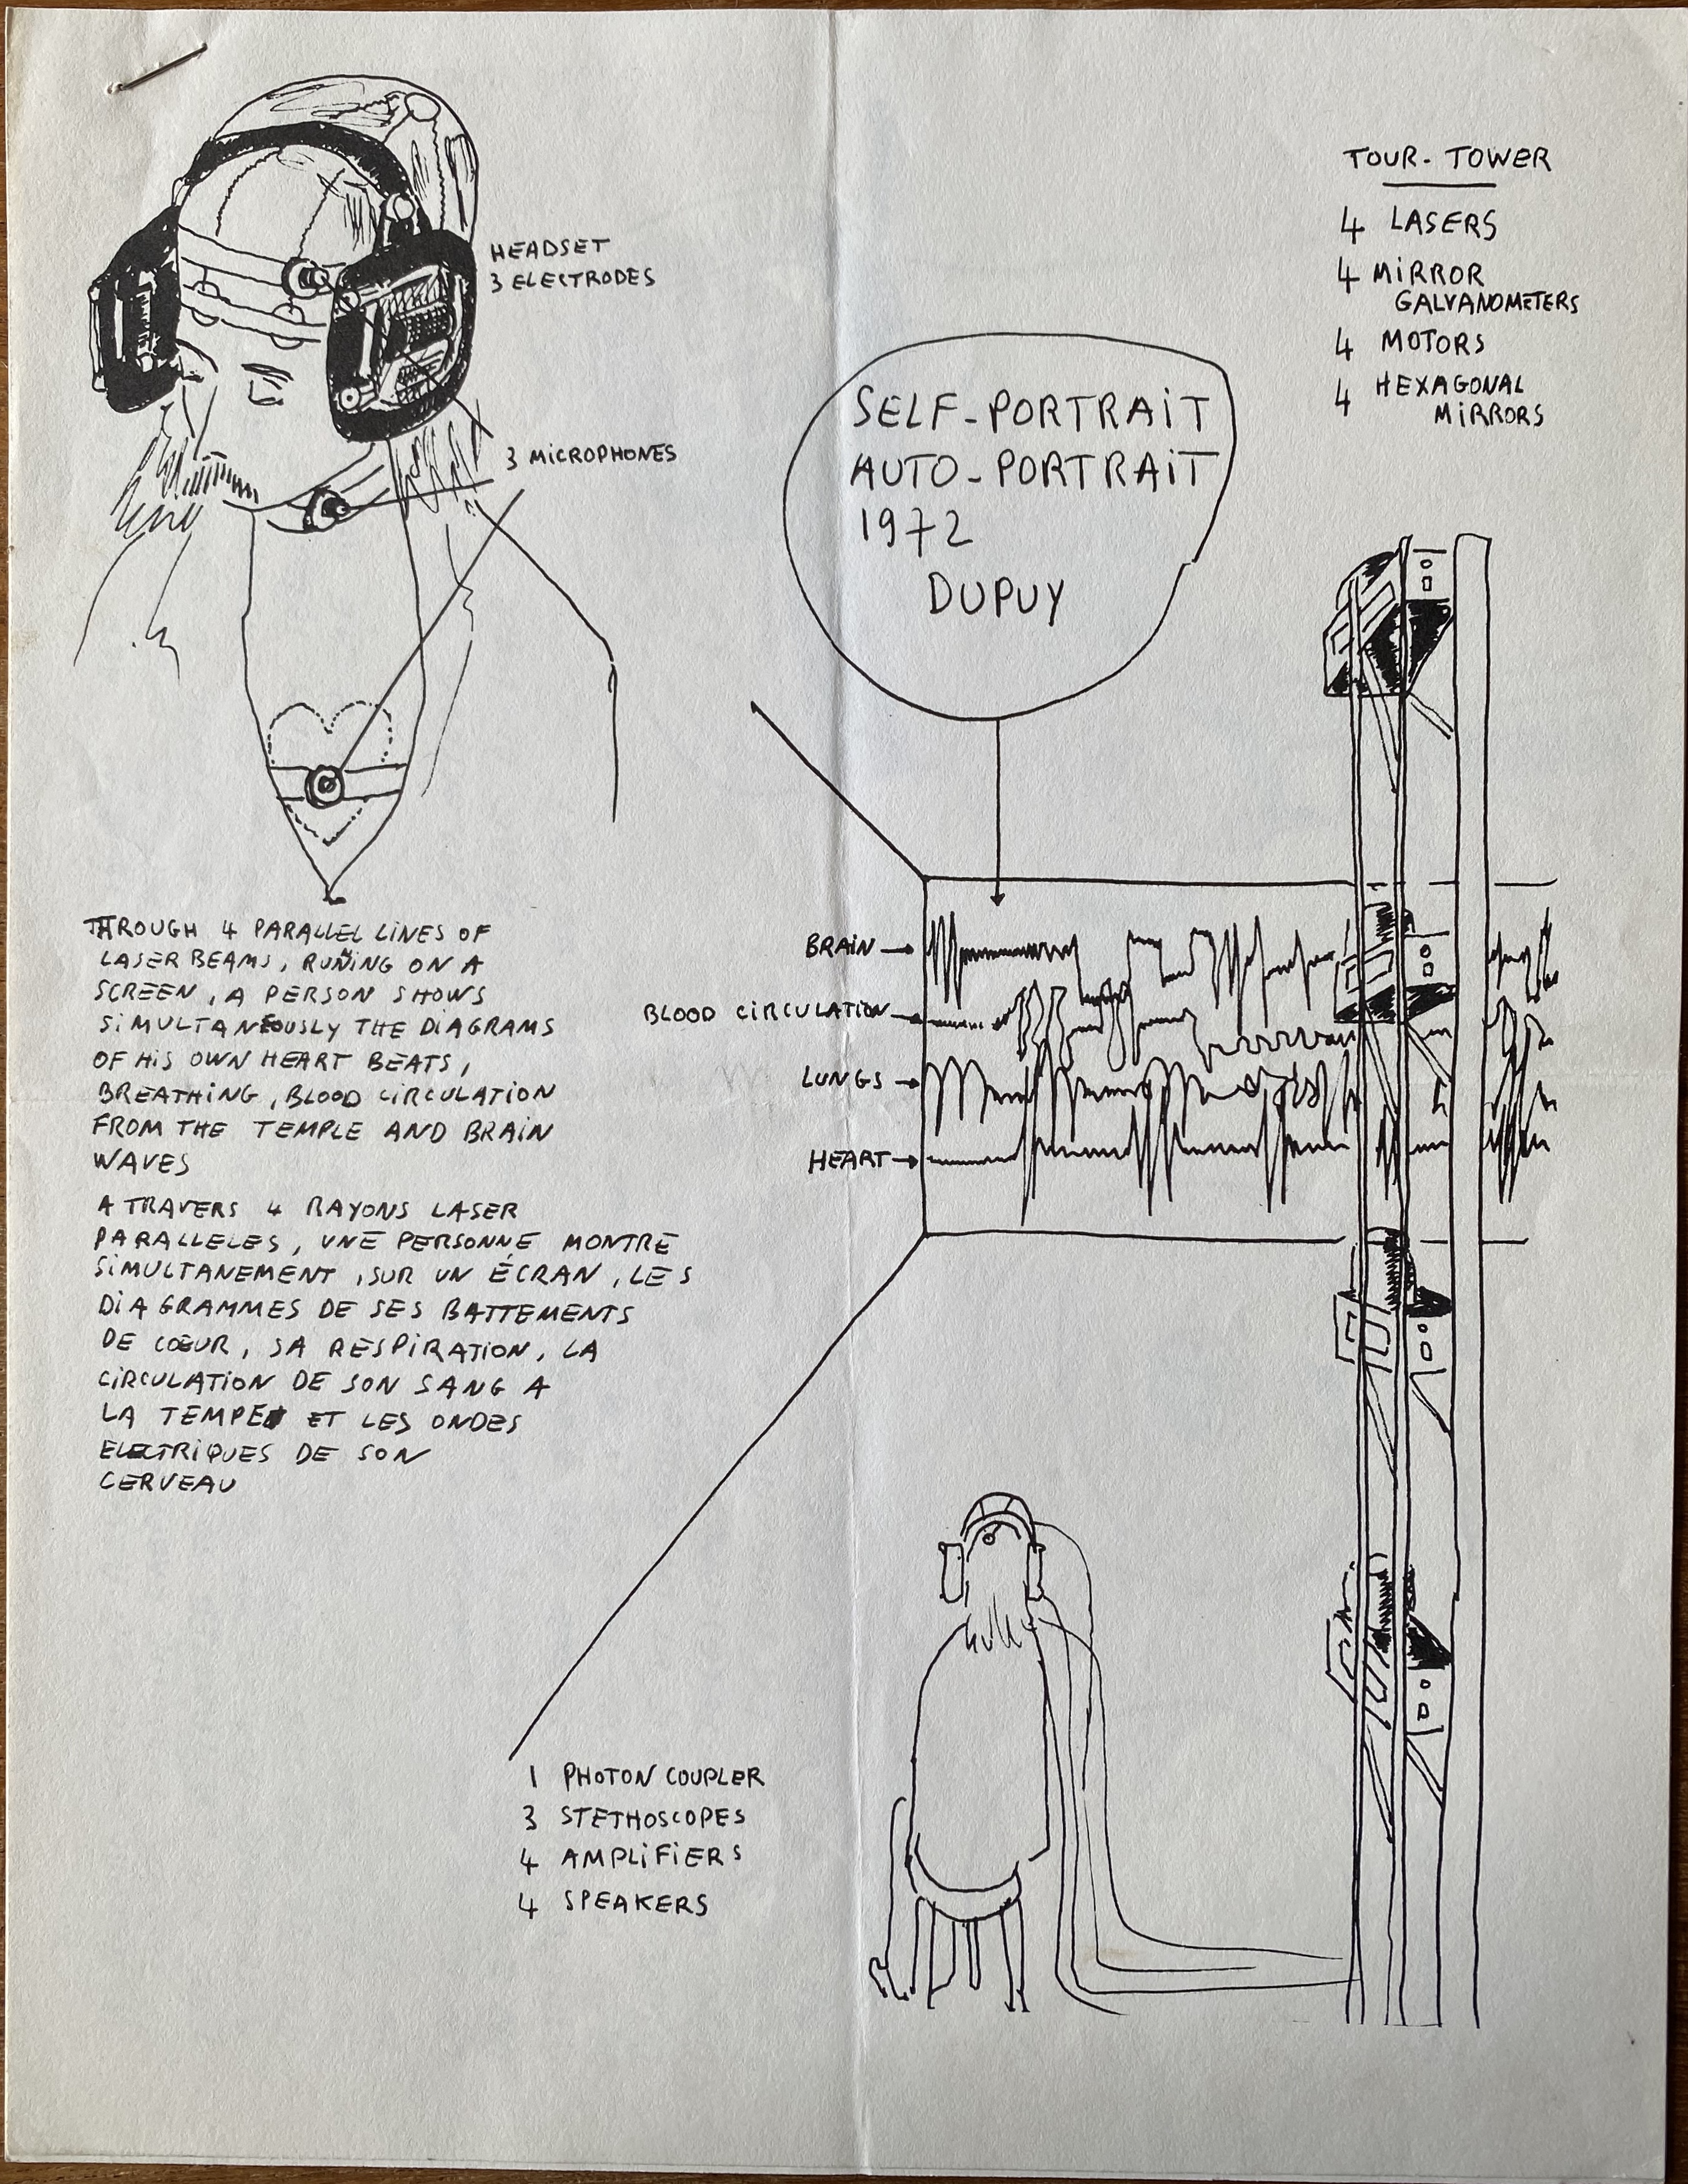 HEADSET
3 ELECTRODES
3 MICROPHONES
SELF-PORTRAIT
AUTO-PORTRAIT
1972
DUPUY
TOUR-TOWER
4 LASERS
4 MIRROR
GALVANOMETERS
4 MOTORS
4 HEXAGONAL
MIRRORS
THROUGH 4 PARALLEL LINES OF
LASER BEAMS, RUNING ON A
SCREEN, A PERSON SHOWS
SIMULTANEOUSLY THE DIAGRAMS
OF HIS OWN HEART BEATS,
BREATHING, BLOOD CIRCULATION
FROM THE TEMPLE AND BRAIN
WAVES
A TRAVERS 4 RAYONS LASER
PARALLELES, UNE PERSONNE MONTRE
SIMULTANEMENT, SUR UN ÉCRAN, LES
DIAGRAMMES DE SES BATTEMENTS
DE CŒUR, SA RESPIRATION, LA
CIRCULATION DE SON SANG A
LA TEMPE ET LES ONDES
ELECTRIQUES DE SON
CERVEAU
BRAIN
BLOOD CIRCULATION
LUNGS
HEART
1 PHOTON COUPLER
3 STETHOSCOPES
4 AMPLIFIERS
4 SPEAKERS